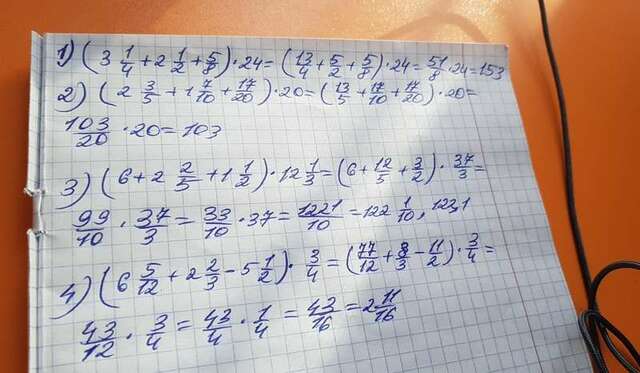 1) (3 1/4 + 2 1/2 + 5/8) · 24 = (13/4 + 5/2 + 5/8) · 24 = 51/8 · 24 = 153
2) (2 3/5 + 1 7/10 + 17/20) · 20 = (13/5 + 17/10 + 17/20) · 20 =
103/20 · 20 = 103
3) (6 + 2 2/5 + 1 1/2) · 12 1/3 = (6 + 12/5 + 3/2) · 37/3 =
99/10 · 37/3 = 33/10 · 37 = 1221/10 = 122 1/10, 122,1
4) (6 5/12 + 2 2/3 - 5 1/2) · 3/4 = (77/12 + 8/3 - 11/2) · 3/4 =
43/12 · 3/4 = 43/4 · 1/4 = 43/16 = 2 11/16